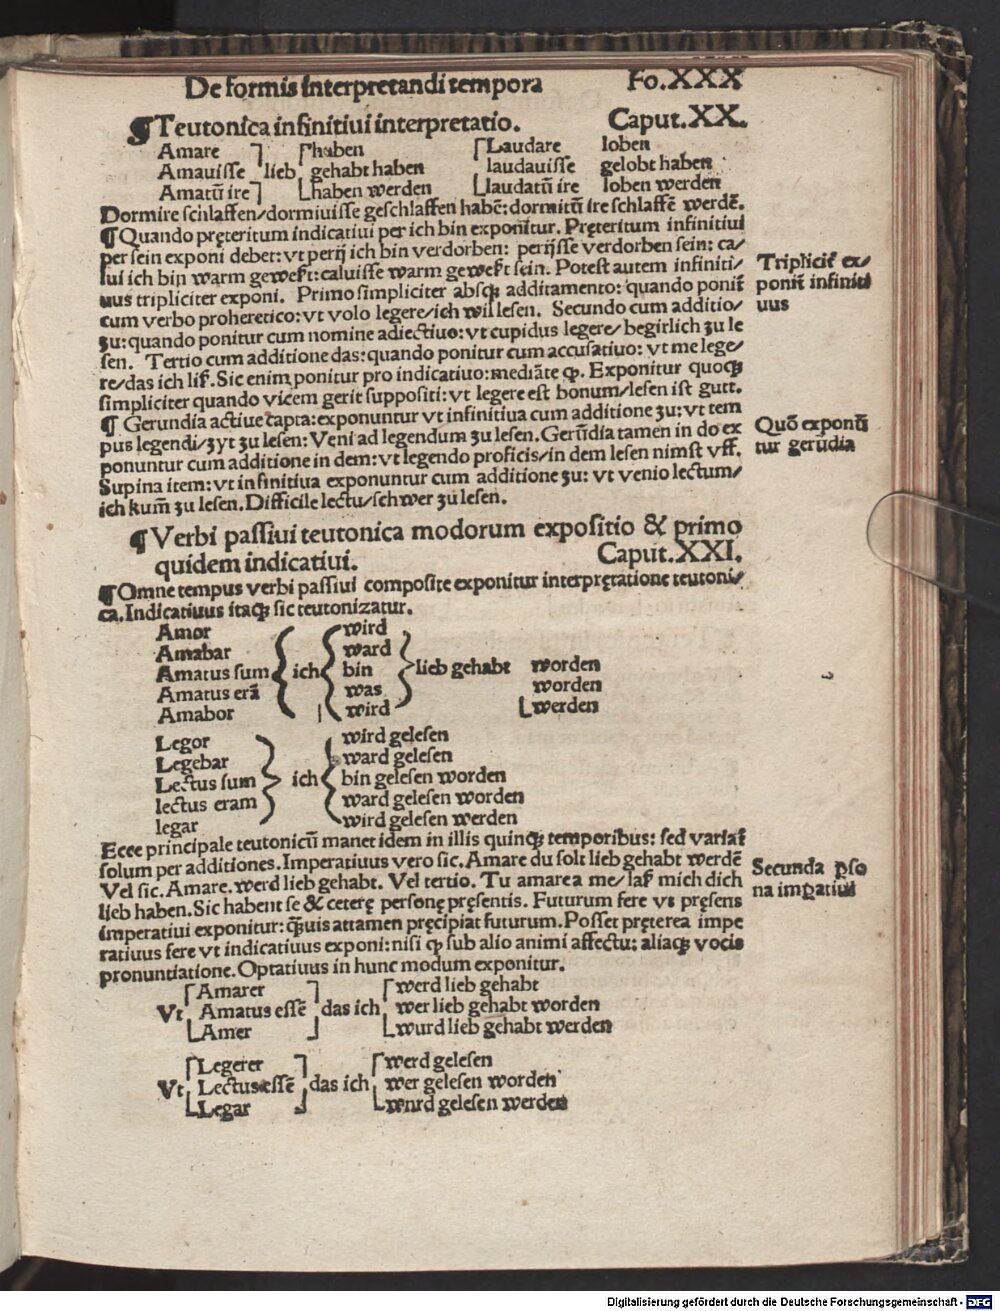 De formis interpretandi tempora Fo.XXX
¶ Teutonica infinitiui interpretatio. Caput.XX.
Amare haben Laudare loben
Amauisse lieb gehabt haben laudauisse gelobt haben
Amatū ire haben werden laudatū ire loben werden
Dormire schlaffen/dormiuisse geschlaffen habē: dormitū ire schlaffē werdē.
¶ Quando pręteritum indicatiui per ich bin exponitur. Pręteritum infinitiui
per sein exponi debet: vt perij ich bin verdorben: perijsse verdorben sein: ca/
lui ich bin warm gewest: caluisse warm gewest sein. Potest autem infiniti/
uus tripliciter exponi. Primo simpliciter absqꝫ additamento: quando ponit᷑
cum verbo proheretico: vt volo legere/ich wil lesen. Secundo cum additio/
zu: quando ponitur cum nomine adiectiuo: vt cupidus legere/ begirlich zu le
sen. Tertio cum additione das: quando ponitur cum accusatiuo: vt me lege/
re/das ich lis. Sic enim ponitur pro indicatiuo: mediāte ꝙ. Exponitur quoqꝫ
simpliciter quando vicem gerit suppositi: vt legere est bonum/lesen ist gutt.
¶ Gerundia actiue capta: exponuntur vt infinitiua cum additione zu: vt tem
pus legendi/zyt zu lesen: Veni ad legendum zu lesen. Gerūdia tamen in do ex
ponuntur cum additione in dem: vt legendo proficis/in dem lesen nimst vff.
Supina item: vt infinitiua exponuntur cum additione zu: vt venio lectum/
ich kum̄ zu lesen. Difficile lectu/schwer zu lesen.
Triplicit᷑ ex/
ponit᷑ infiniti
uus
Quō exponū
tur gerūdia
¶ Verbi passiui teutonica modorum expositio & primo
quidem indicatiui. Caput.XXI.
¶ Omne tempus verbi passiui composite exponitur interpretatione teutoni/
ca. Indicatiuus itaqꝫ sic teutonizatur.
Amor wird
Amabar ward
Amatus sum ich bin lieb gehabt worden
Amatus erā was worden
Amabor wird werden
Legor wird gelesen
Legebar ward gelesen
Lectus sum ich bin gelesen worden
lectus eram ward gelesen worden
legar wird gelesen werden
Ecce principale teutonicū manet idem in illis quinqꝫ temporibus: sed variat᷑
solum per additiones. Imperatiuus vero sic. Amare du solt lieb gehabt werdē
Vel sic. Amare. werd lieb gehabt. Vel tertio. Tu amarea me/ las mich dich
lieb haben. Sic habent se & ceterę personę pręsentis. Futurum fere vt pręsens
imperatiui exponitur: ꝗ̃uis attamen pręcipiat futurum. Posset pręterea impe
ratiuus fere vt indicatiuus exponi: nisi ꝙ sub alio animi affectu: aliaqꝫ vocis
pronuntiatione. Optatiuus in hunc modum exponitur.
Secunda ꝑso
na imꝑatiui
Amarer werd lieb gehabt
Vt Amatus essē das ich wer lieb gehabt worden
Amer wurd lieb gehabt werden
Legerer werd gelesen
Vt Lectus essē das ich wer gelesen worden
Legar wurd gelesen werden
Digitalisierung gefördert durch die Deutsche Forschungsgemeinschaft - DFG